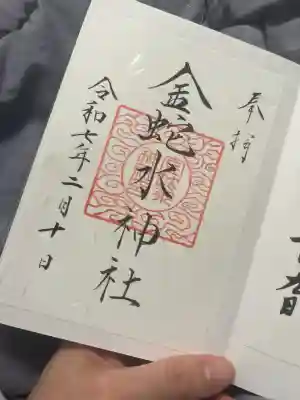 奉拝
金蛇水神社
令和七年二月十日